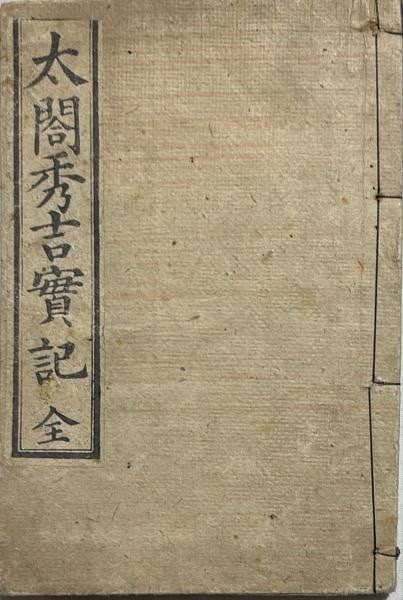 太閤秀吉實記 全